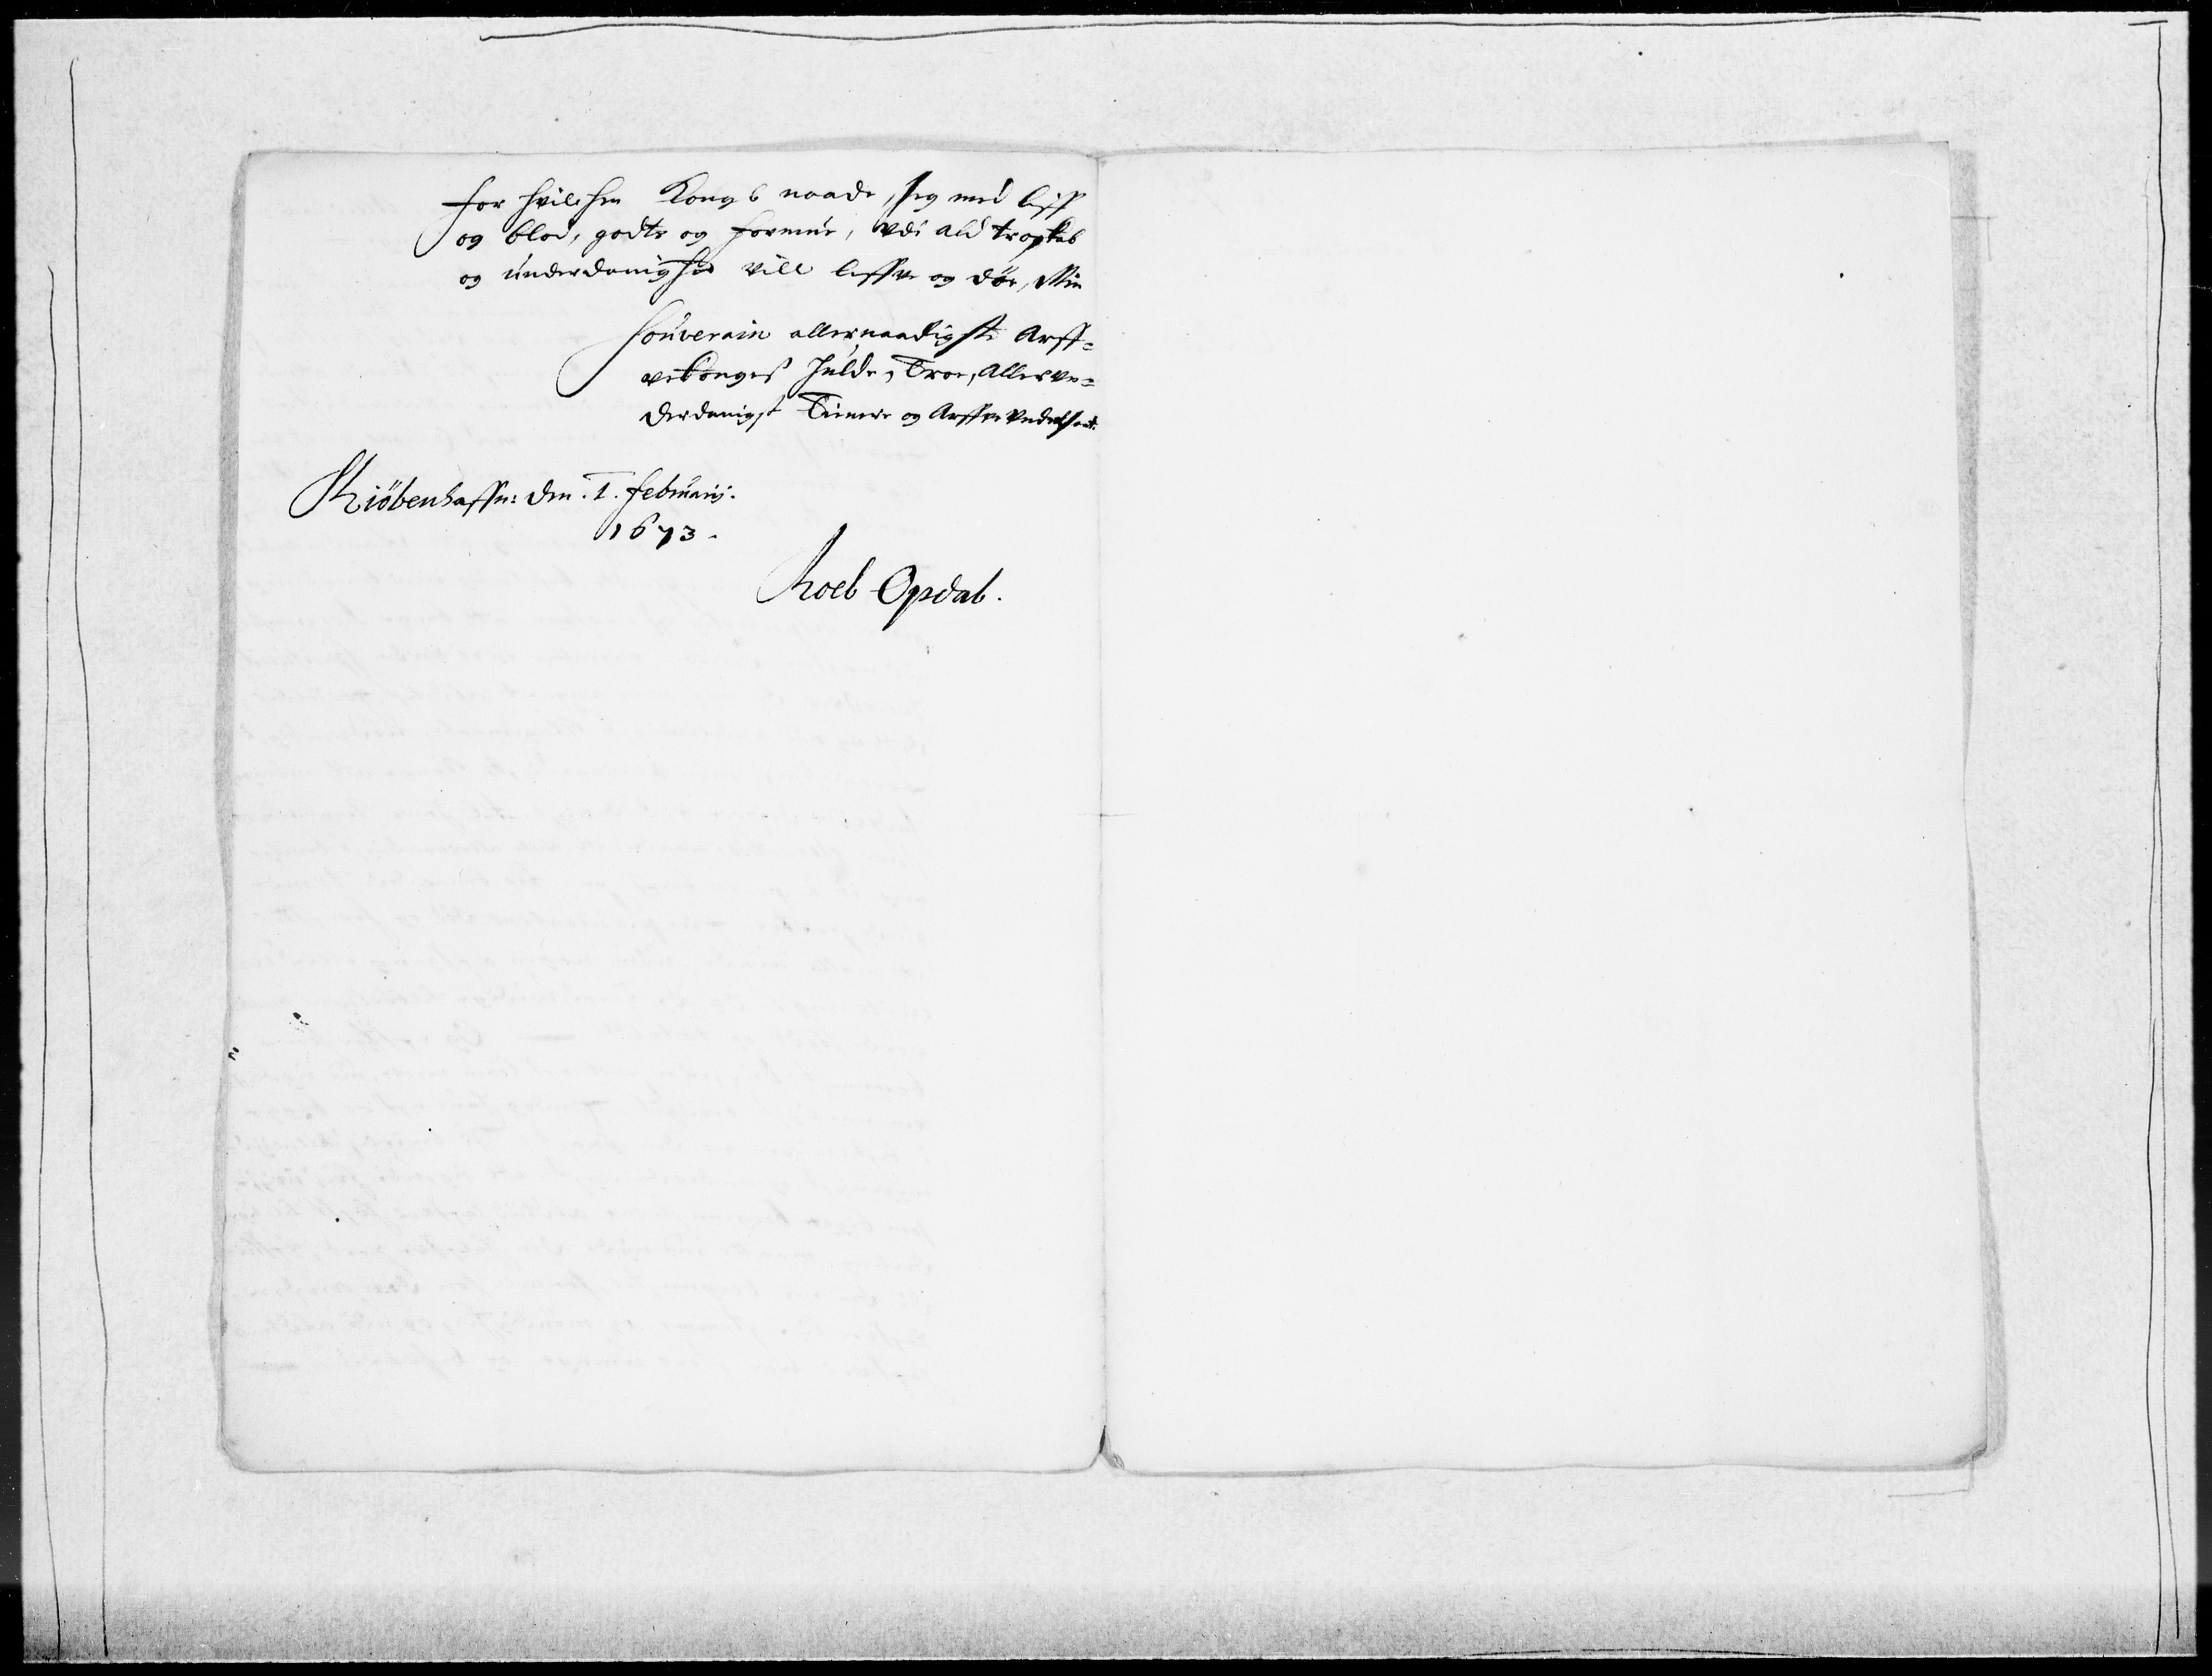 for hvilchen Kongl naade, Jeg med liff
og blod, godts og formue, vdi ald troskab
og underdanighed vill leffve og døe, Min
Souverain allernaadigste Arff=
vekonges hulde, Troe, Allerun=
derdanigst Tienere og Arffve Undersaat.
Kiöbenhaffn: den. 1. februarij.
1673.
Opdal.